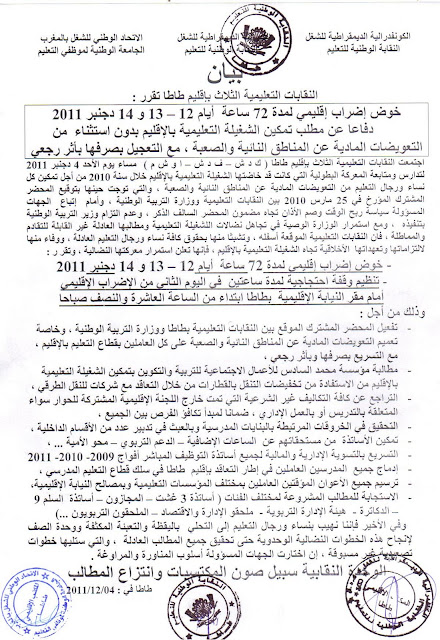 الكونفدرالية الديمقراطية للشغل
النقابة الوطنية للتعليم
الديمقراطية للشغل
الوطنية للتعليم
الاتحاد الوطني للشغل بالمغرب
الجامعة الوطنية لموظفي التعليم
بيان
النقابات التعليمية الثلاث بإقليم طاطا تقرر :
خوض إضراب إقليمي لمدة 72 ساعة أيام 12 – 13 و 14 دجنبر 2011
دفاعا عن مطلب تمكين الشغيلة التعليمية بالإقليم بدون استثناء من
التعويضات المادية عن المناطق النائية والصعبة ، مع التعجيل بصرفها بأثر رجعي
اجتمعت النقابات التعليمية الثلاث بإقليم طاطا ( ك د ش – ف د ش – ا و ش م ) مساء يوم الأحد 4 دجنبر 2011
لتدارس ومتابعة المعركة البطولية التي كانت قد خاضتها الشغيلة التعليمية بالإقليم خلال سنة 2010 من أجل تمكين كل
نساء ورجال التعليم من التعويضات المادية عن المناطق النائية والصعبة ، والتي توجت حينها بتوقيع المحضر
المشترك المؤرخ في 25 مارس 2010 بين النقابات التعليمية ووزارة التربية الوطنية ، وأمام إتباع الجهات
المسؤولة سياسة ربح الوقت وصم الأذان تجاه مضمون المحضر السالف الذكر ، وعدم التزام وزير التربية الوطنية
بتنفيذه ، ومع استمرار الوزارة الوصية في تجاهل نضالات الشغيلة التعليمية ومطالبها العادلة غير القابلة للتقادم
والمماطلة ، فإن النقابات التعليمية الموقعة أسفله ، وتشبثا منها بحقوق كافة نساء ورجال التعليم العادلة ، ووفاء منها
لالتزاماتها وتعهداتها الأخلاقية تجاه الشغيلة التعليمية بالإقليم ، فإنها تعلن استمرار معركتها النضالية ، وتقرر :
- خوض إضراب إقليمي لمدة 72 ساعة أيام 12 – 13 و 14 دجنبر 2011
- تنظيم وقفة احتجاجية لمدة ساعتين في اليوم الثاني من الإضراب الإقليمي
أمام مقر النيابة الإقليمية بطاطا ابتداء من الساعة العاشرة والنصف صباحا
وذلك من أجل :
- تفعيل المحضر المشترك الموقع بين النقابات التعليمية بطاطا ووزارة التربية الوطنية ، وخاصة
تعميم التعويضات المادية عن المناطق النائية والصعبة على كل العاملين بقطاع التعليم بالإقليم ،
مع التسريع بصرفها وبأثر رجعي ,
- مطالبة مؤسسة محمد السادس للأعمال الاجتماعية للتربية والتكوين بتمكين الشغيلة التعليمية
بالإقليم من الاستفادة من تخفيضات التنقل بالقطارات من خلال التعاقد مع شركات للنقل الطرقي ,
- التراجع عن كافة التكاليف غير الشرعية التي تمت خارج اللجنة الإقليمية المشتركة للحوار سواء
المتعلقة بالتدريس أو بالعمل الإداري ، ضمانا لمبدأ تكافؤ الفرص بين الجميع ,
- التحقيق في الخروقات المرتبطة بالبنايات المدرسية وبالعبث في تدبير عدد من الأقسام الداخلية ,
- تمكين الأساتذة من مستحقاتهم عن الساعات الإضافية – الدعم التربوي – محو الأمية ... ,
- التسريع بالتسوية الإدارية والمالية لجميع أساتذة التوظيف المباشر أفواج 2009- 2010- 2011
- إدماج جميع المدرسين العاملين في إطار التعاقد بإقليم طاطا في سلك قطاع التعليم المدرسي ,
- ترسيم جميع الأعوان المؤقتين العاملين بمختلف المؤسسات التعليمية وبمصالح النيابة الإقليمية,
- الاستجابة للمطالب المشروعة لمختلف الفئات ( أساتذة 3 غشت – المجازون – أساتذة السلم 9
– الدكاترة - هيئة الإدارة التربوية - ملحقو الإدارة والاقتصاد – الملحقون التربويون ...)
وفي الأخير فإننا نهيب بنساء ورجال التعليم إلى التحلي باليقظة والتعبئة المكثفة ووحدة الصف
لإنجاح هذه الخطوات النضالية الوحدوية حتى تحقيق جميع المطالب العادلة ، والتي ستليها خطوات
تصعيدية غير مسبوقة ، إن اختارت الجهات المسؤولة أسلوب المناورة والمراوغة .
النقابية سبيل صون المكتسبات وانتزاع المطالب
طاطا في : 2011/12/04